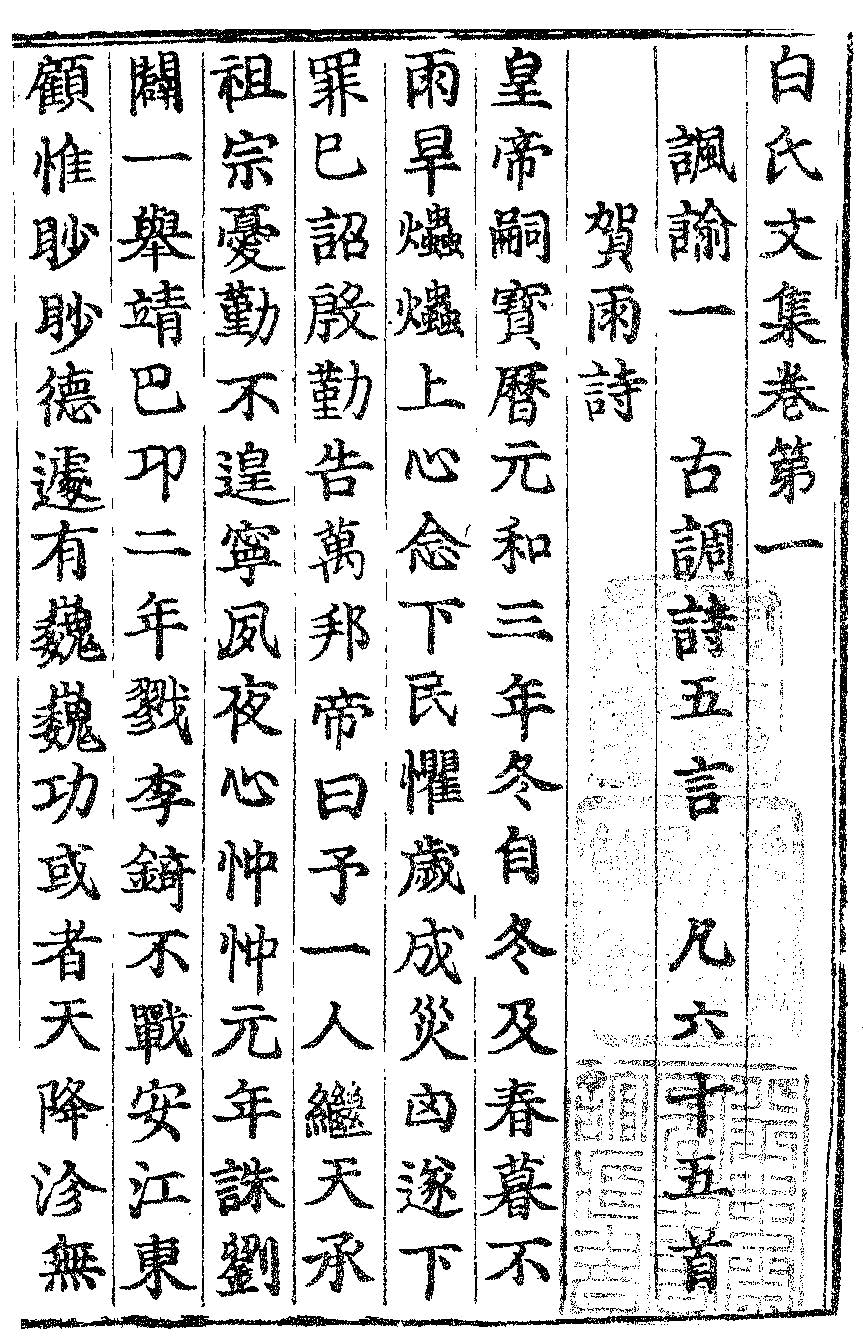 白氏文集卷第一
諷諭一　古調詩五言　凡六十五首
賀雨詩
皇帝嗣寳曆元和三年冬自冬及春暮不
雨旱爞爞上心念下民懼歳成災凶遂下
罪巳詔殷勤告萬邦帝曰予一人繼天承
祖宗憂勤不遑寧夙夜心忡忡元年誅劉
闢一舉靖巴邛二年戮李錡不戰安江東
顧惟眇眇德遽有巍巍功或者天降沴無